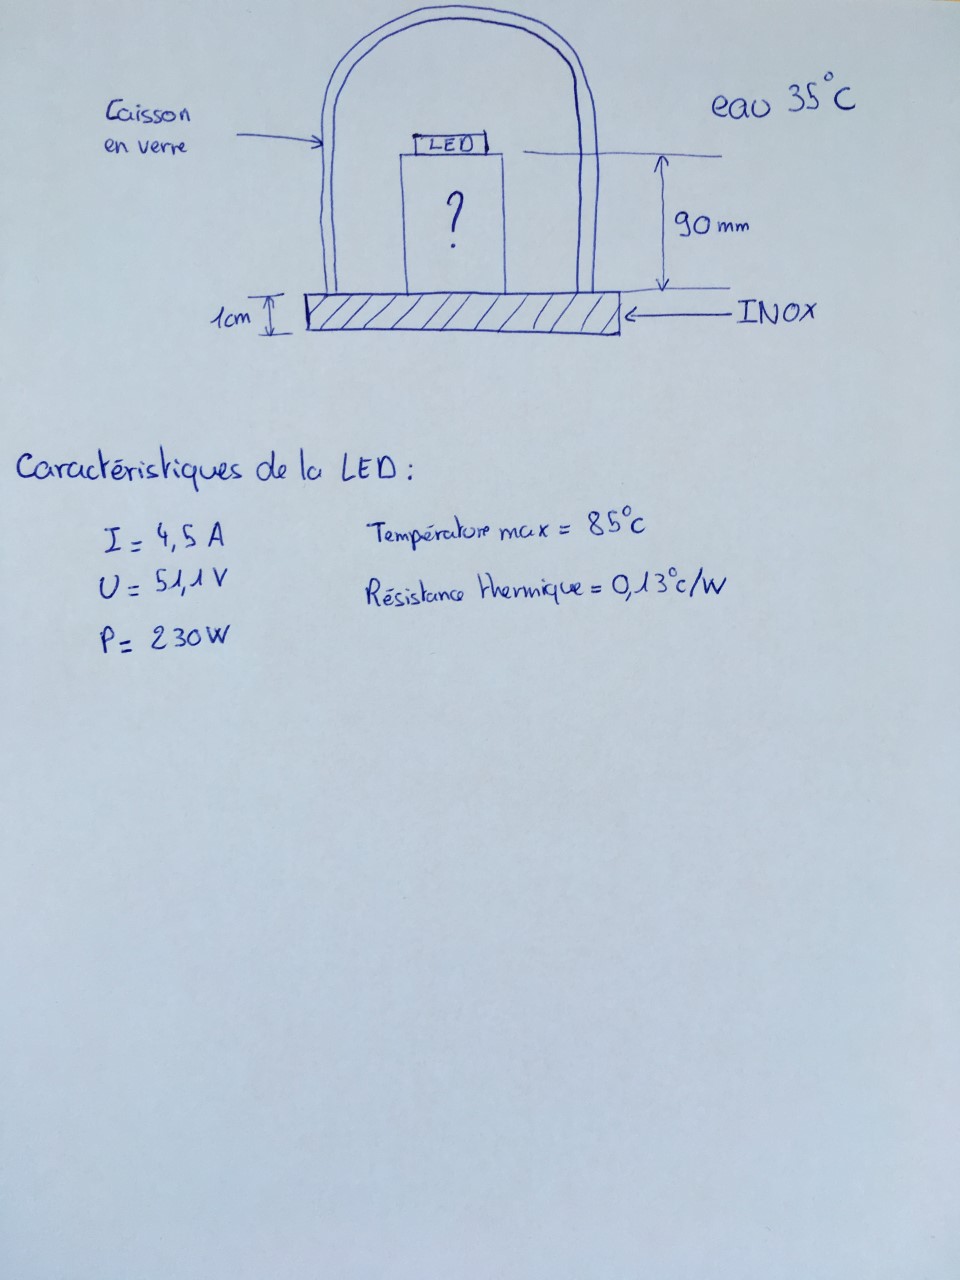 Caisson
en verre
eau 35°C
LED
?
90 mm
1cm
INOX
Caractéristiques de la LED :
I = 4,5 A
Température max = 85°C
U = 51,1 V
Résistance thermique = 0,13°C/W
P = 230W